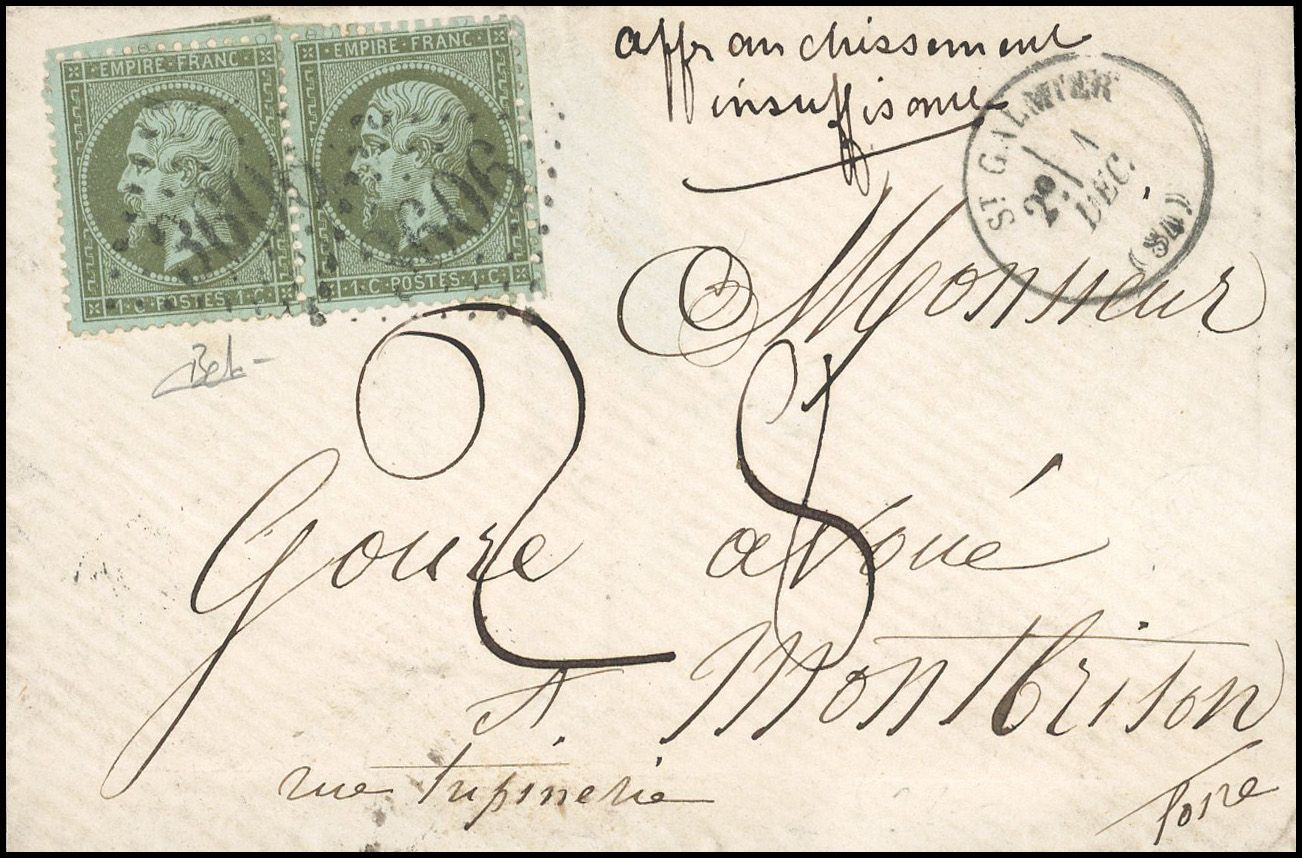 affranchissement
insuffisant
EMPIRE FRANC
EMPIRE FRANC
1 C POSTES 1 C
1 C POSTES 1 C
3606
3606
ST. GALMIER
2e 1
DEC.
(84)
Monsieur
28
Goure avoué
A Montbrison
rue tupinerie
Loire